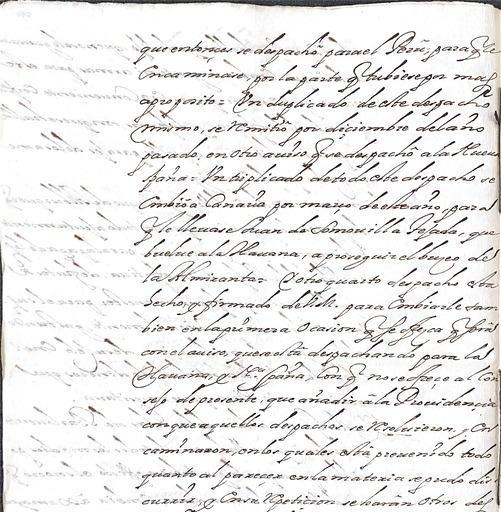 que entonces se despachô para el Perû, para q̃ le
Encaminase, por la parte q̃ tubiese por mas
aproposito = Un duplicado de este despacho
mismo, se remitiô por diciembre del año
pasado, en otro aviso q̃ se despachô a la Nueva
España = Un triplicado de todo este despacho se
embiô a Canaria por março de este año, para
q̃ le llevase Juan de Somovilla Tejada, que
buelve a la Havana, a proseguir el buçeo de
la Almiranta = Y otro quarto despacho esta
hecho, y firmado de V. M. para embiarle tam
bien en la primera ocasion q̃ se ofrezca q̃ serâ
con el aviso, que se estâ despachando para la
Havana, y Nra. España, Con q̃ no se ofrece al Con
sejo de presente, que añadir â la Providencia
con que aquellos despachos se resolvieron, y En
caminaron, en los quales estâ prevenido todo
quanto al parecer en la materia se pudo dis
currir, y En su repeticion se harân otros des